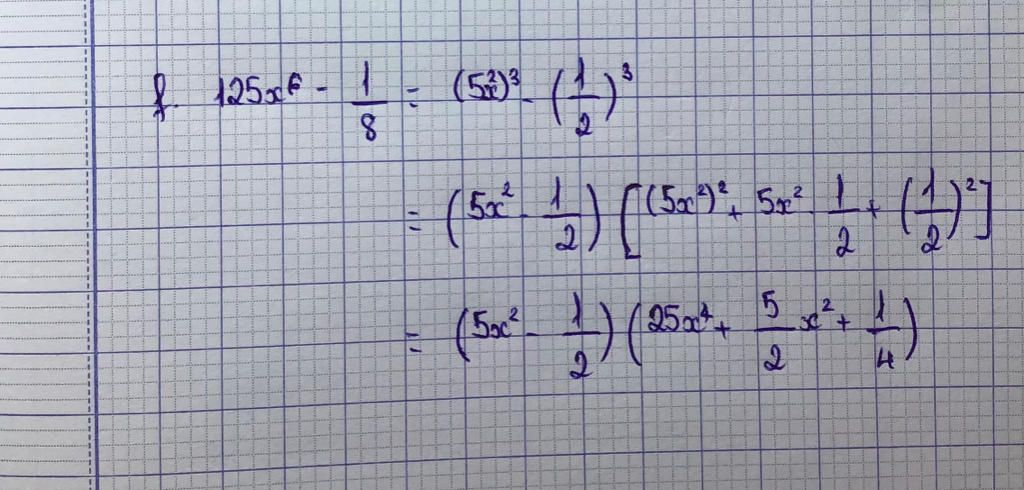 f. 125x⁶ - 1/8 = (5x²)³ - (1/2)³
= (5x² - 1/2) [(5x²)² + 5x² · 1/2 + (1/2)²]
= (5x² - 1/2) (25x⁴ + 5/2 x² + 1/4)